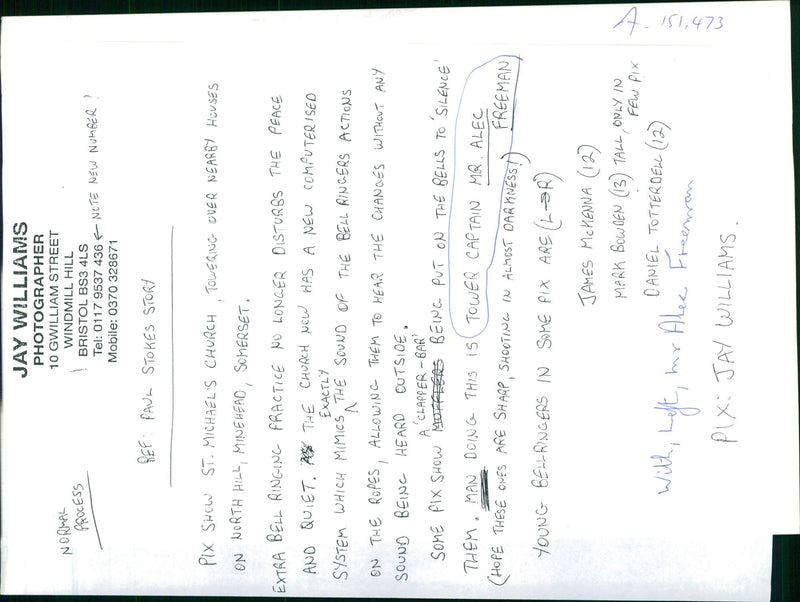 A. 151,473
JAY WILLIAMS
PHOTOGRAPHER
10 GWILLIAM STREET
WINDMILL HILL
BRISTOL BS3 4LS
Tel: 0117 9537 436 ← NOTE NEW NUMBER!
Mobile: 0370 328671
NORMAL
PROCESS
REF: PAUL STOKES STORY
PIX SHOW ST. MICHAEL'S CHURCH, TOWERING OVER NEARBY HOUSES
ON NORTH HILL, MINEHEAD, SOMERSET.
EXTRA BELL RINGING PRACTICE NO LONGER DISTURBS THE PEACE
AND QUIET. THE CHURCH NOW HAS A NEW COMPUTERISED
SYSTEM WHICH MIMICS EXACTLY THE SOUND OF THE BELL RINGERS ACTIONS
ON THE ROPES, ALLOWING THEM TO HEAR THE CHANGES WITHOUT ANY
SOUND BEING HEARD OUTSIDE.
SOME PIX SHOW A 'CLAPPER-BAR' MUFFLERS BEING PUT ON THE BELLS TO 'SILENCE'
THEM. MAN DOING THIS IS TOWER CAPTAIN MR. ALEC FREEMAN
(HOPE THESE ONES ARE SHARP, SHOOTING IN ALMOST DARKNESS!)
YOUNG BELLRINGERS IN SOME PIX ARE (L→R)
JAMES McKENNA (12)
MARK BOWDEN (13) TALL, ONLY IN FEW PIX
DANIEL TOTTERDELL (12)
With, Left, Mr Alec Freeman
PIX: JAY WILLIAMS.